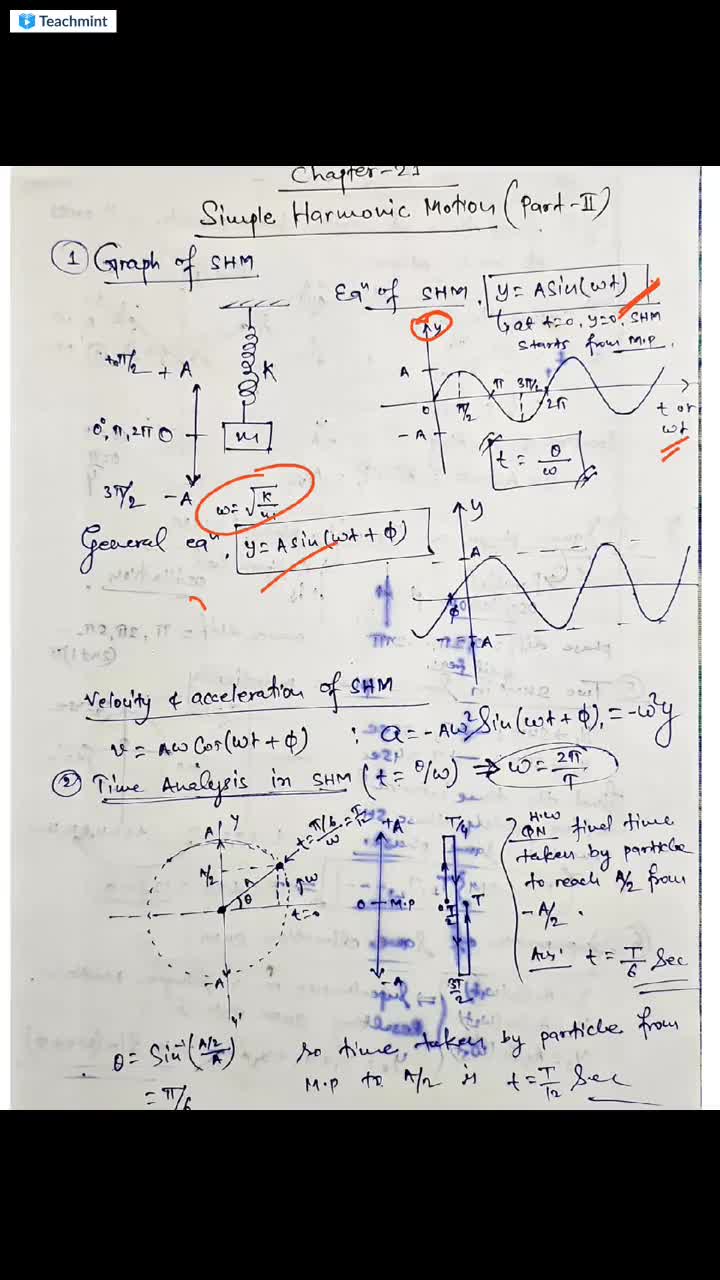 Teachmint
Chapter-21
Simple Harmonic Motion (Part-II)
① Graph of SHM
Eqⁿ of SHM, y = A sin(ωt)
↳ at t=0, y=0, SHM
starts from M.P.
+π/2 + A
K
0°, π, 2π 0
m
3π/2 -A
ω = √(K/m)
y
A
0
-A
π/2
π
3π/2
2π
t or
ωt
t = θ/ω
General eqⁿ, y = A sin(ωt + φ)
y
A
φ
-A
Velocity & acceleration of SHM
v = Aω Cos(ωt + φ) ; a = -Aω² Sin(ωt + φ), = -ω²y
② Time Analysis in SHM (t = θ/ω) ⇒ ω = 2π/T
A
y
A/2
A
θ
ω
t=0
-A
y'
+A
0 M.P
-A
T/4
T/2
T
H.W
QN find time
taken by particle
to reach A/2 from
-A/2.
Ans' t = T/6 Sec
θ = Sin⁻¹(A/2/A)
= π/6
so time taken by particle from
M.P to A/2 is t = T/12 Sec